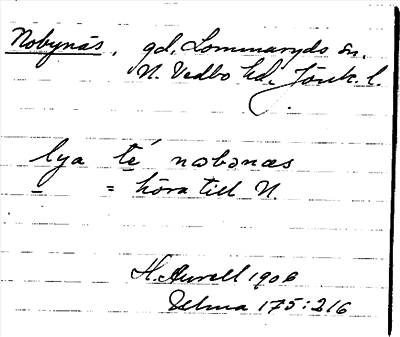 Nobynäs, gd, Lommaryds sn,
N. Vedbo hd, Jönk. l.
lya té nobənæs
= höra till N.
H. Aurell 1906
175:216